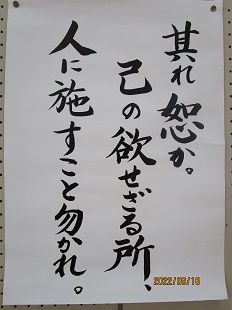 其れ恕か。
己の欲せざる所、
人に施すこと勿かれ。
2022/09/16